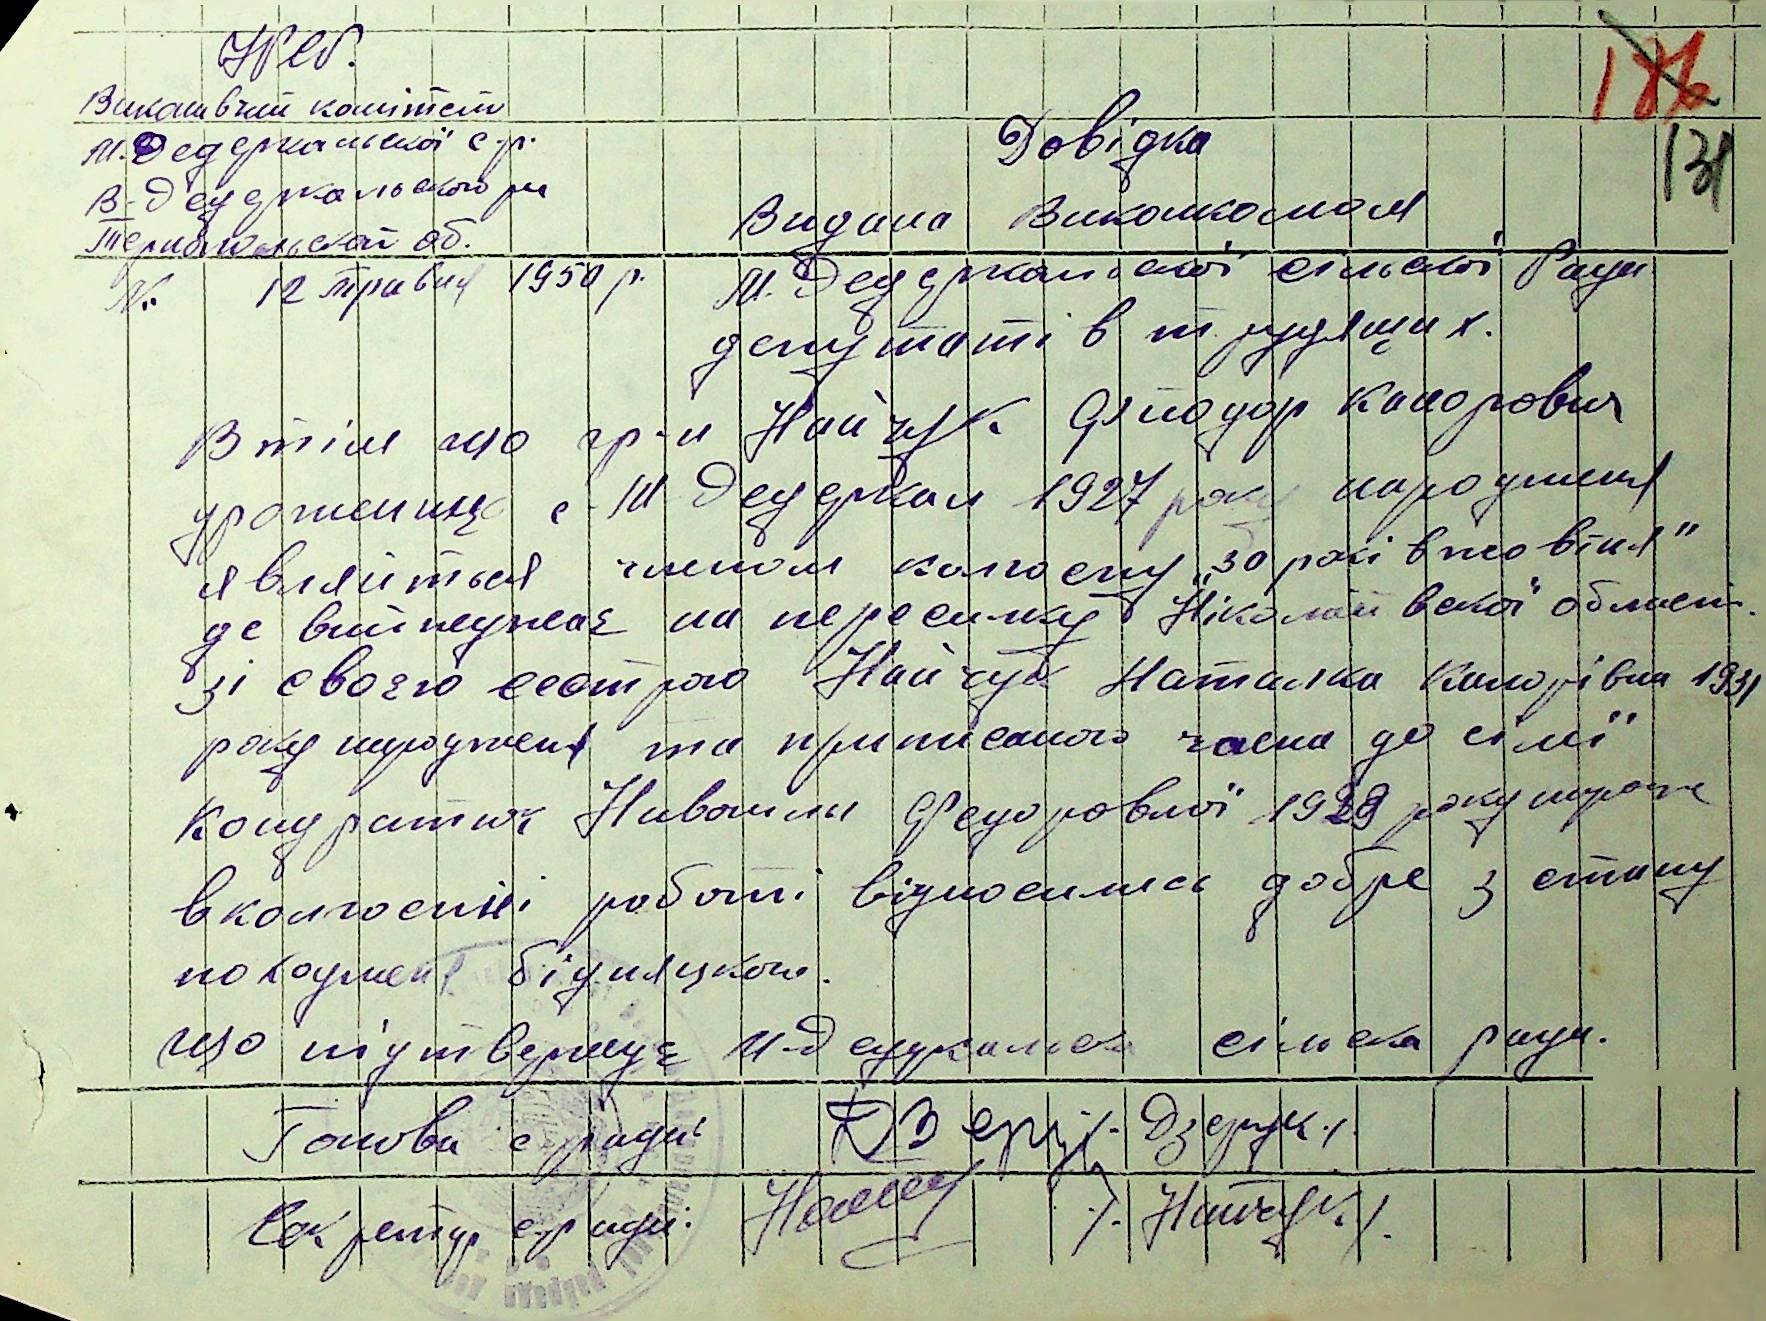 УРСР.
Виконавчий комітет
М.Дедеркальської с-р.
В-Дедеркальського р-н
Тернопільской об.
№ 12 травня 1950 р.
186
131
Довідка
Видана Виконкомом
М.Дедеркальської сільської Ради
депутатів трудящих.
В тім що гр-н Найчук Федор Канорович
уроженец с. М Дедеркал 1927 року народженя
являйться членом колгоспу "30 років жовтня"
де виїжджає на пересилку Ніколайвської област.
зі своєю сестрою Найчук Наталка Канорівна 1931
року народженя та приписаного члена до сімї
Кондратюк Федоровної 1929 року народж
в колгоспні роботі відносились добре з стану
походженя бідняцкого.
що підтвержує М-Дедеркальска сільска рада.
Голова с ради: Дзерук
Секретар с ради: /. Найчук /.